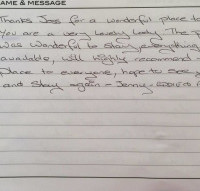 AME & MESSAGE
Thanks Jess for a wonderful place to
You are a very lovely lady. The p
Was wonderful to stay, everything
available, will highly recommend
place to everyone, hope to see y
and Stay again - Jenny